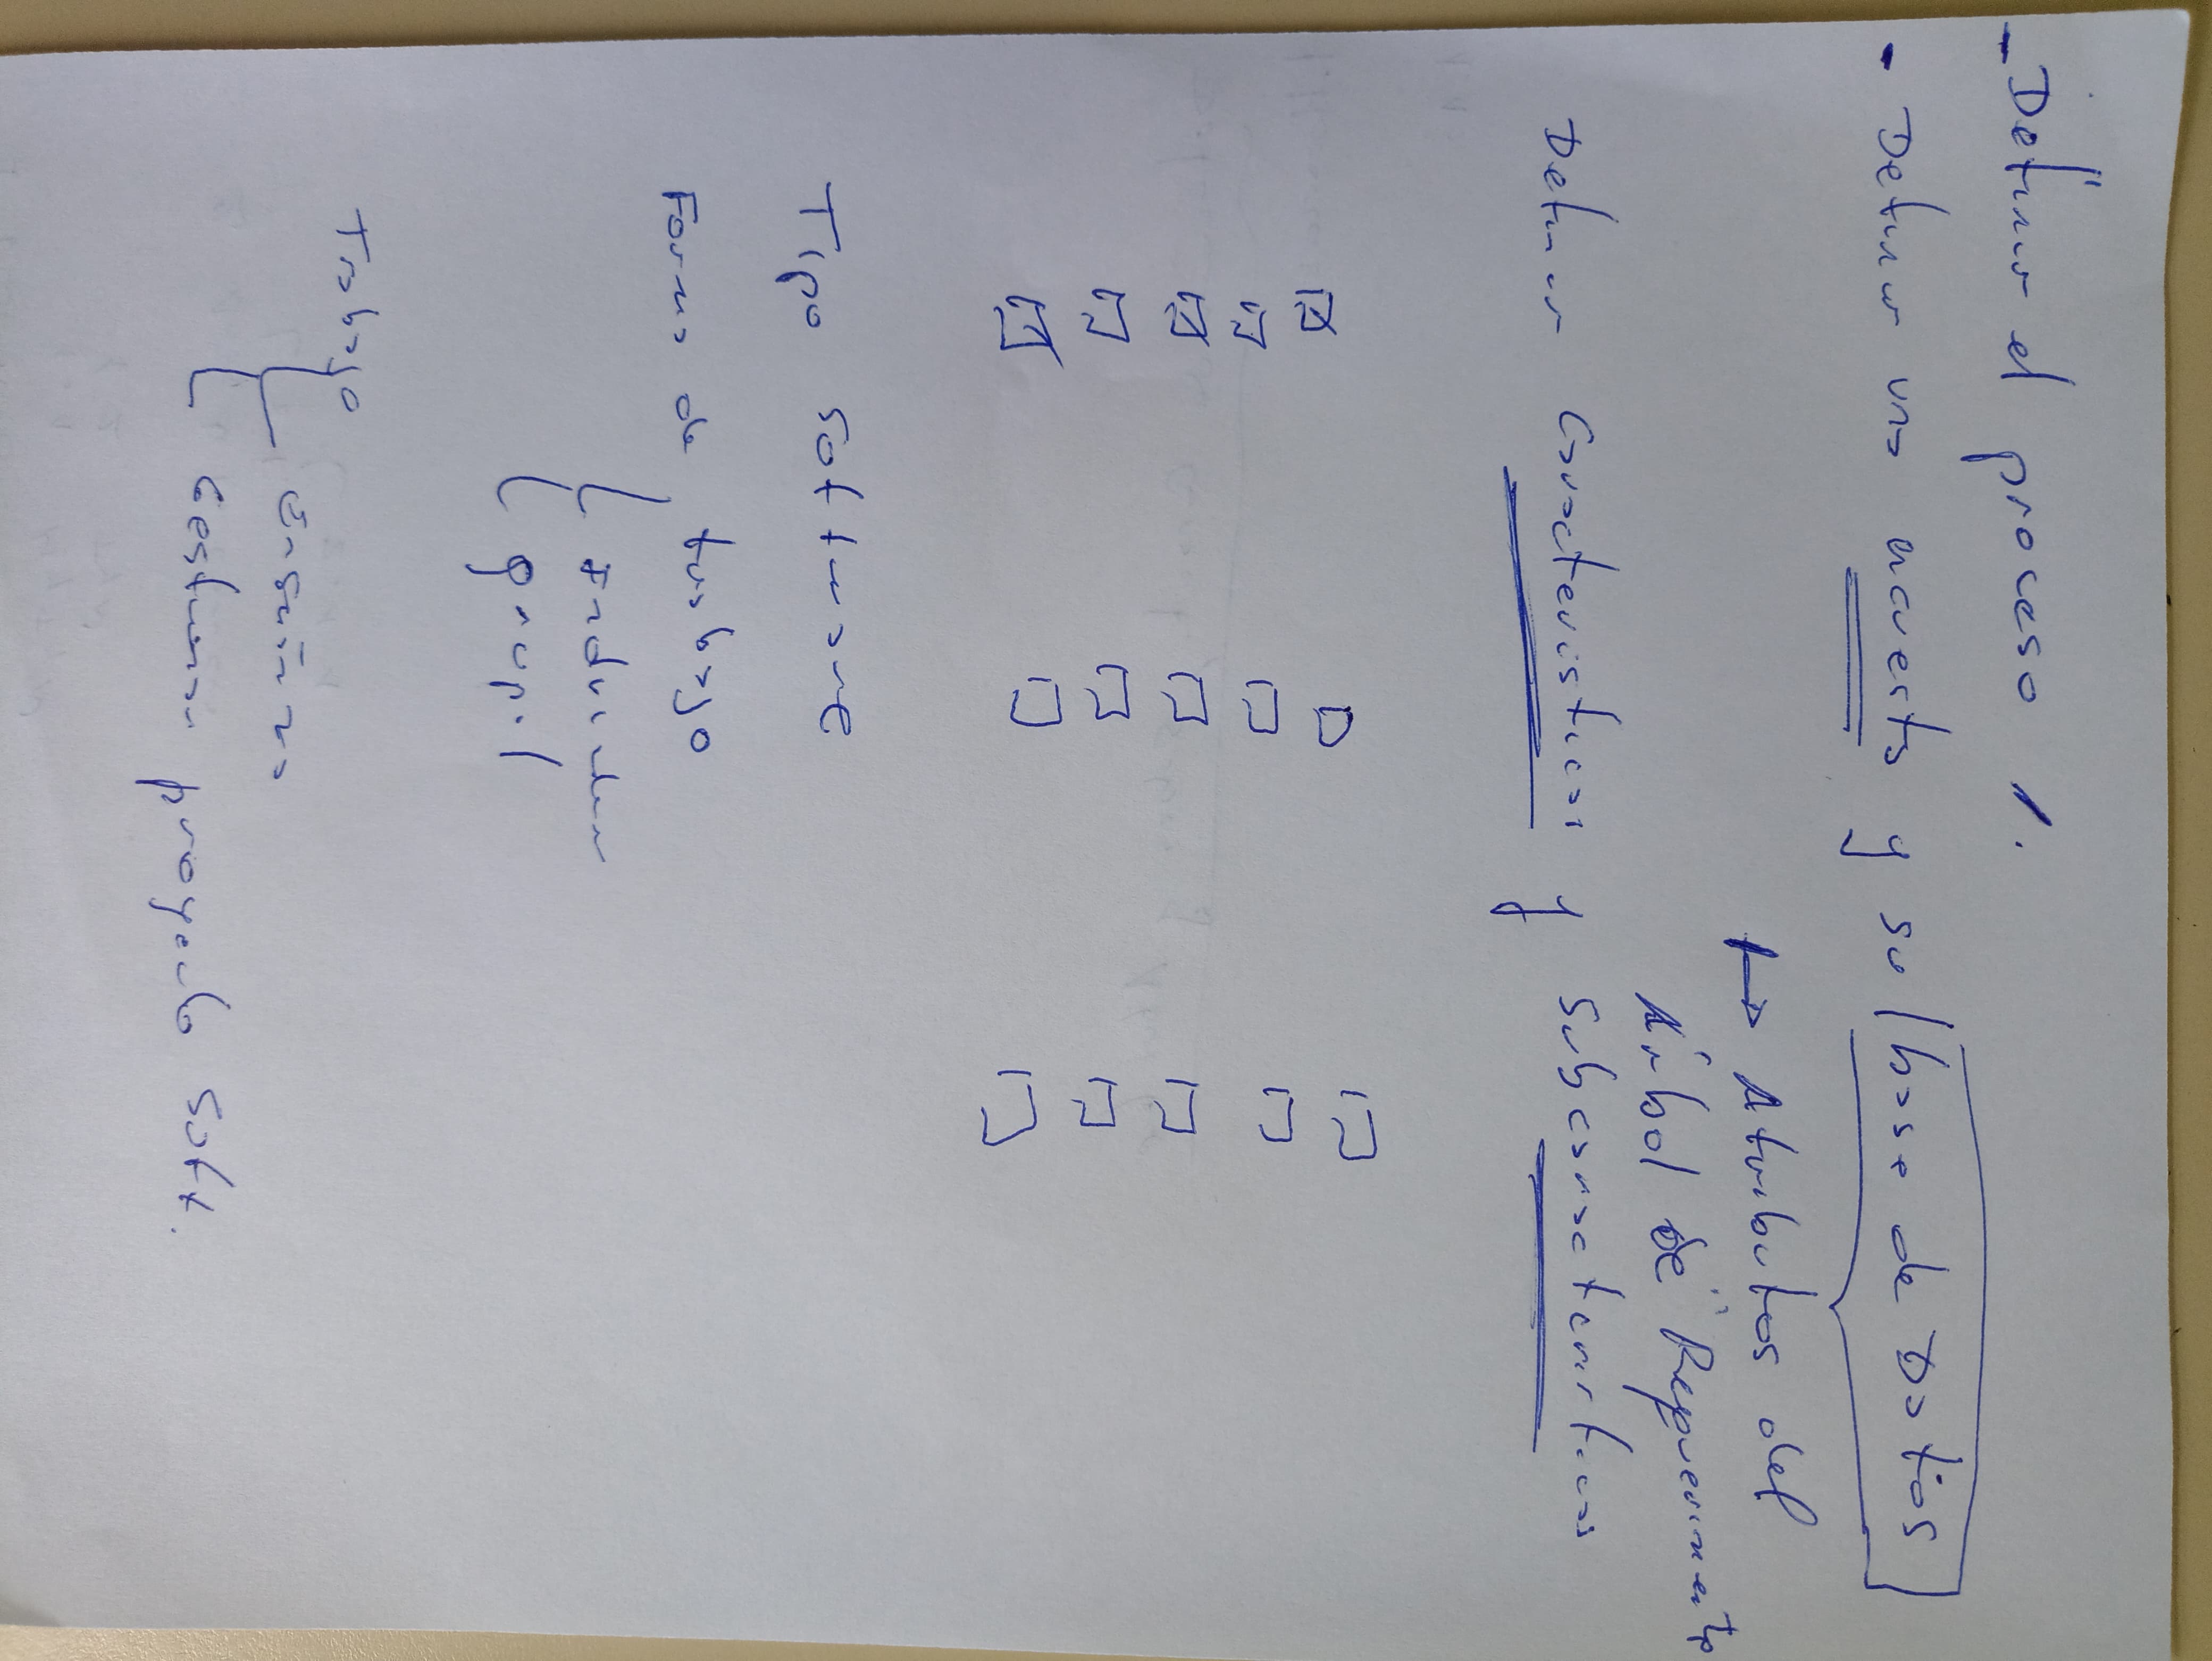 - Definir el proceso 1.
- Definir una encuesta y su base de Datos
→ Atributos del
Árbol de Requerimiento
Definir Características y Subcaracterísticas
Tipo Software
Forma de trabajo
Individual
grupal
Trabajo
Enseñanza
Gestionar proyecto Soft.